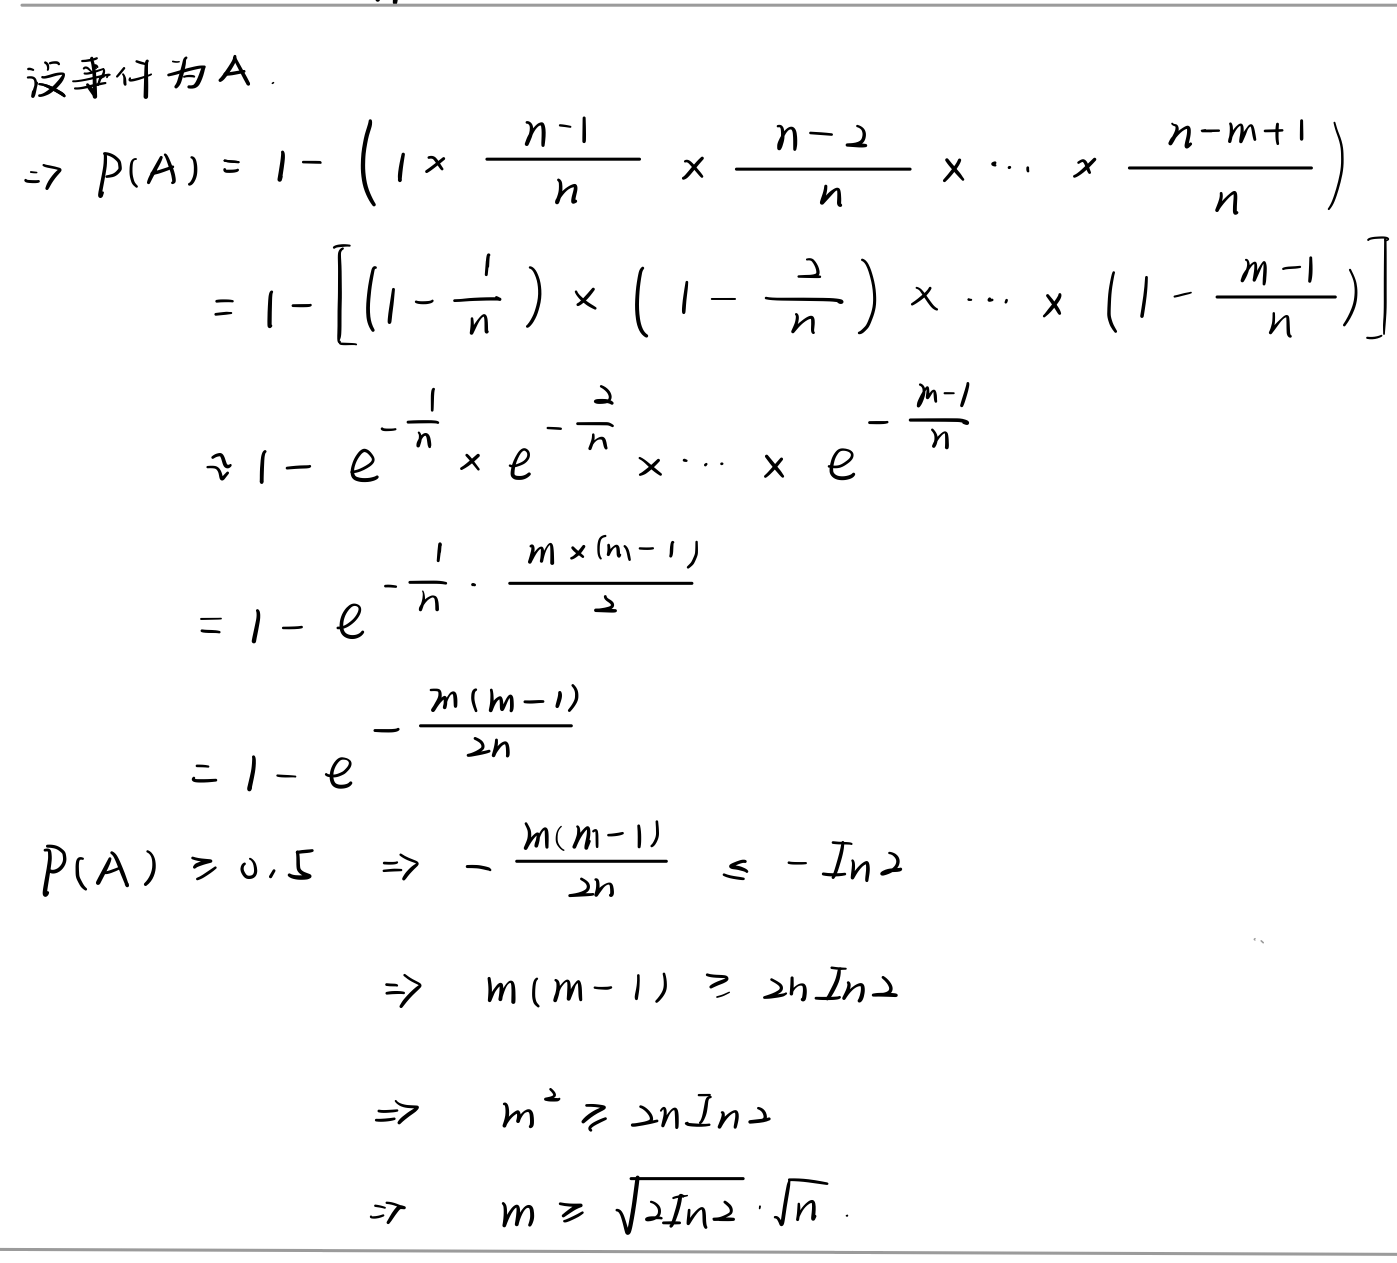 设事件为A.
=> P(A) = 1 - (1 × \frac{n-1}{n} × \frac{n-2}{n} × ··· × \frac{n-m+1}{n})
= 1 - [(1 - \frac{1}{n}) × (1 - \frac{2}{n}) × ··· × (1 - \frac{m-1}{n})]
≈ 1 - e^{-\frac{1}{n}} × e^{-\frac{2}{n}} × ··· × e^{-\frac{m-1}{n}}
= 1 - e^{-\frac{1}{n} · \frac{m×(m-1)}{2}}
= 1 - e^{-\frac{m(m-1)}{2n}}
P(A) ≥ 0.5 => -\frac{m(m-1)}{2n} ≤ -In2
=> m(m-1) ≥ 2nIn2
=> m² ≥ 2nIn2
=> m ≥ \sqrt{2In2} · \sqrt{n}.